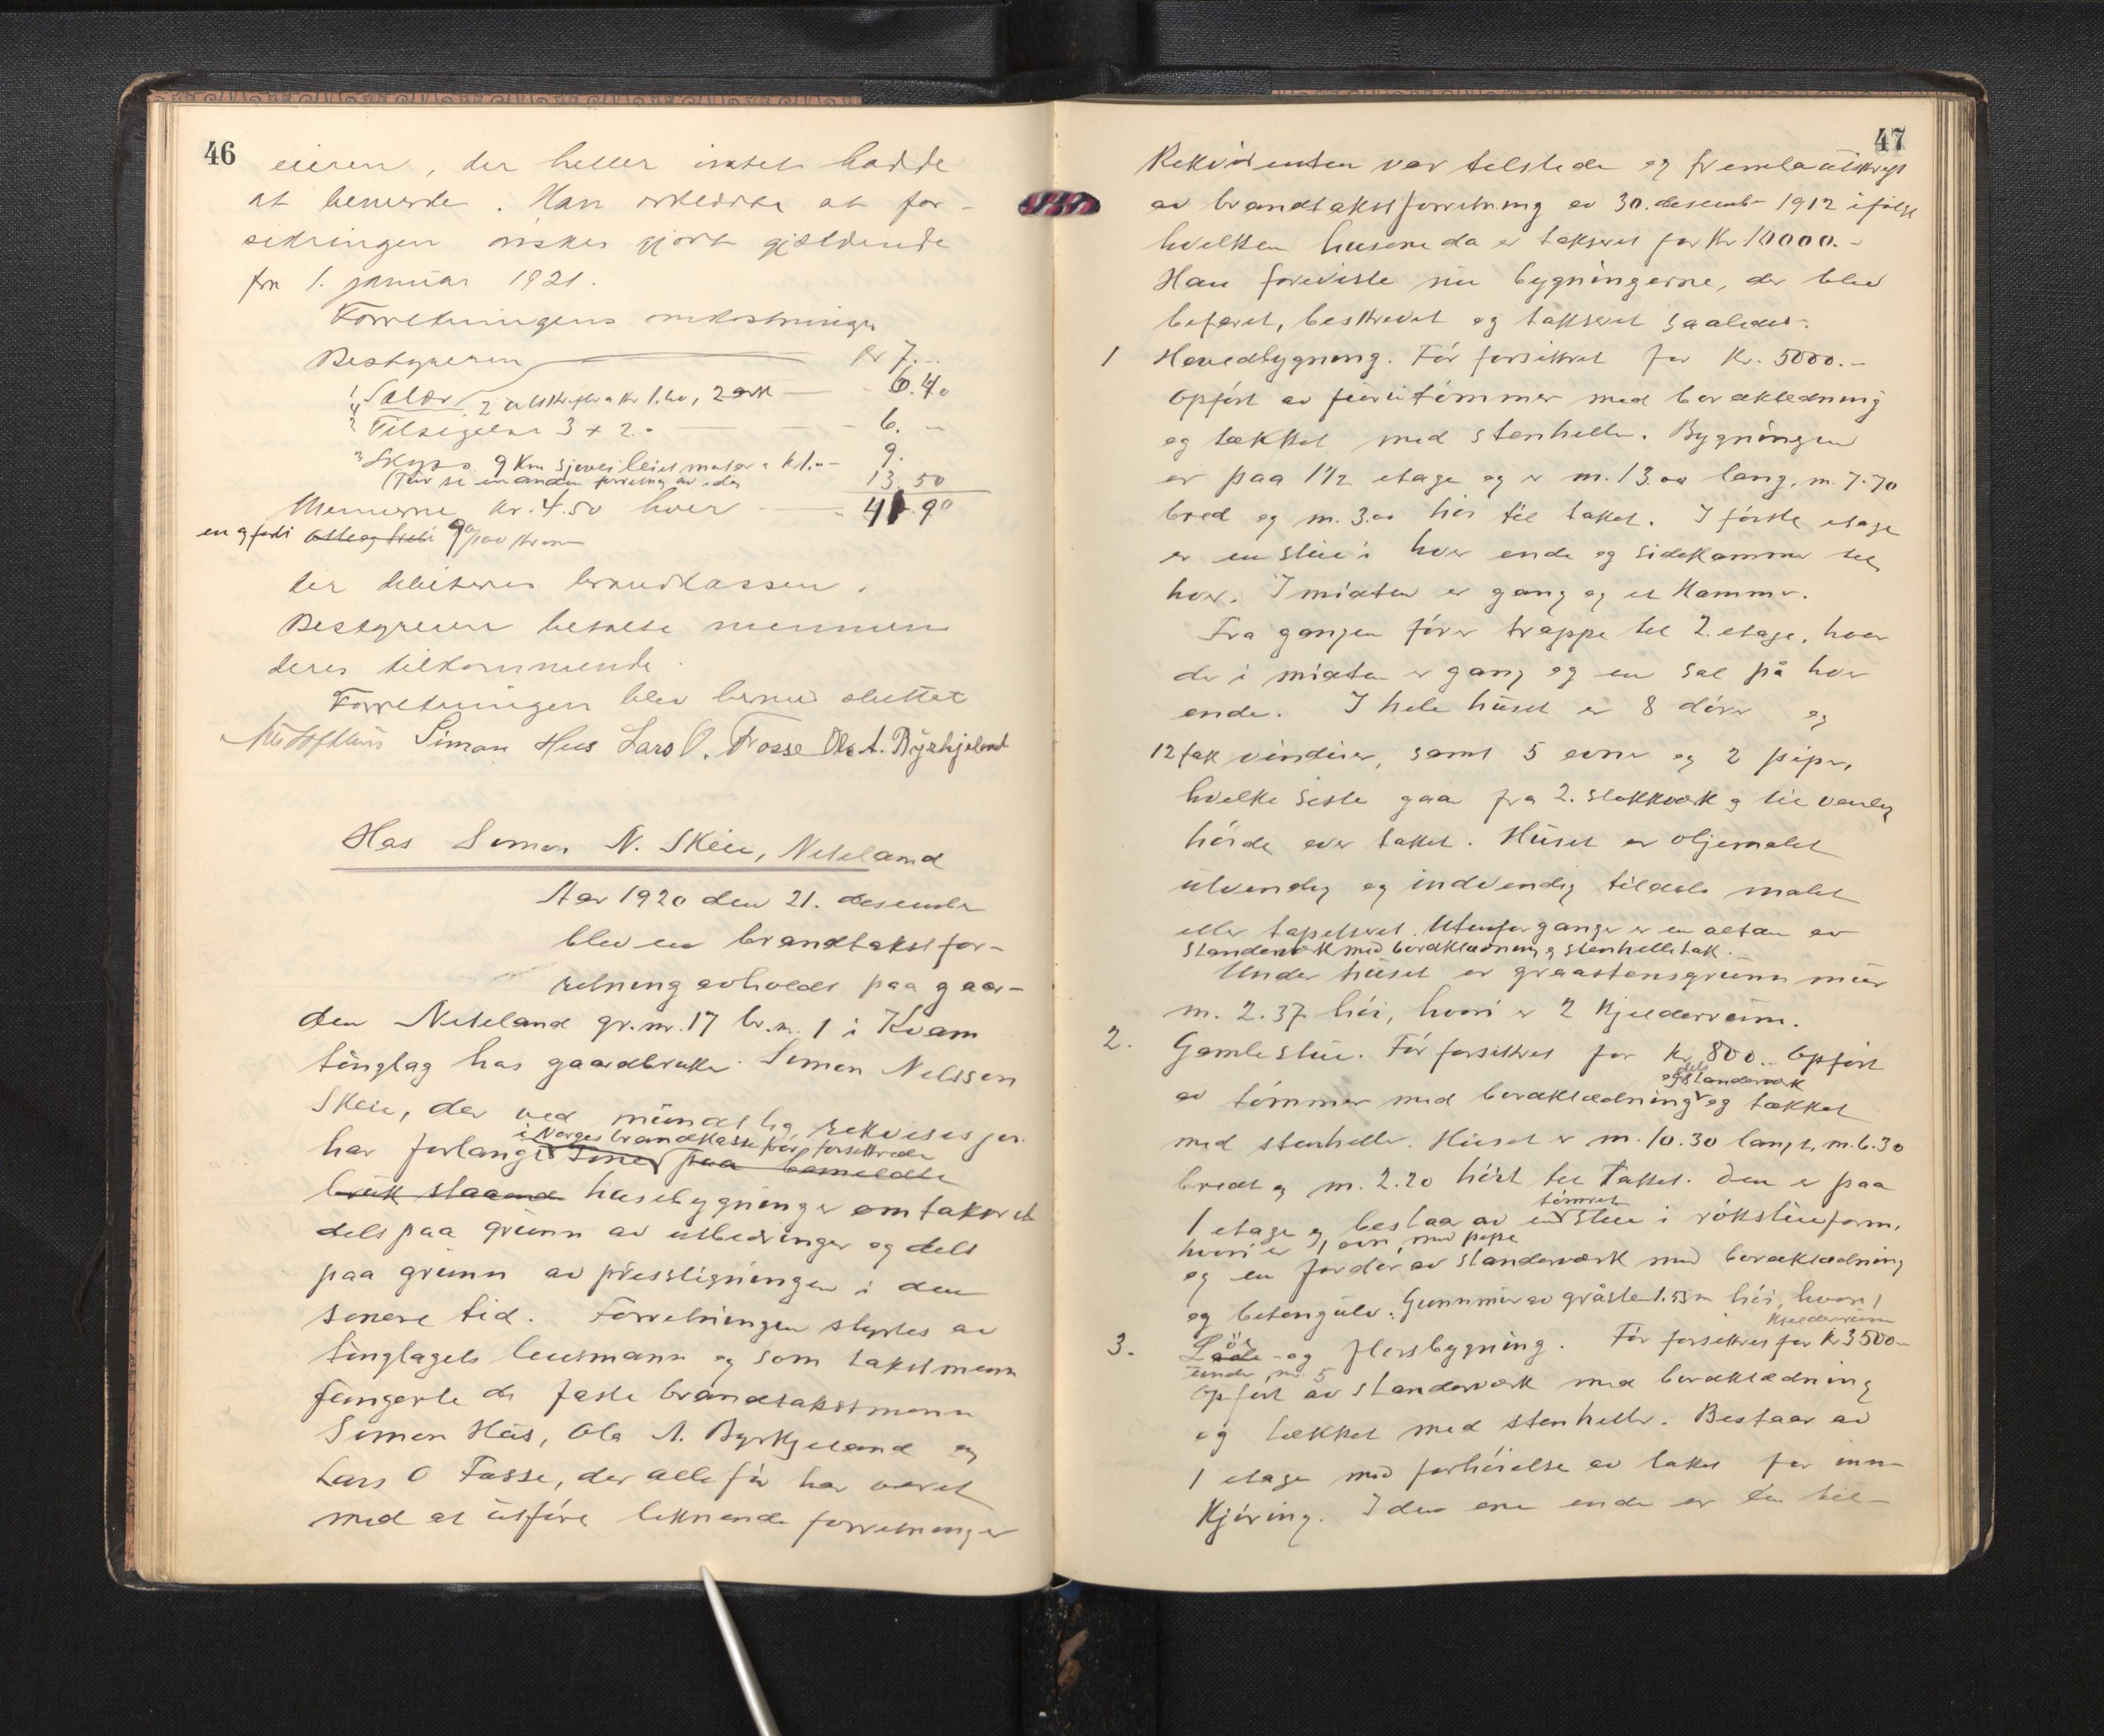 46
eieren, der heller intet hadde
at bemerke. Han erklærte at for-
sikringen ønskes gjort gjældende
fra 1. januar 1921.
Forretningens omkostninger
Bestyreren kr 7.-
1, Salær, 2 utskrifter a kr 1.60, 2 ark - 6.40
2 Tilsigelse 3 x 2.- - 6.-
3 Skyss 9 Km sjøvei leiet motor a kr 1.- - 9.
(Tur se en anden forretning av idag
Mennene kr. 4.50 hver 13.50
- 41.90
en og førti 90/100 kroner
der debiteres brandkassen.
Bestyreren betalte mennene
deres tilkommende.
Forretningen blev hermed sluttet
Simon Hus Lars O. Fosse Ola A. Byrkjeland
Hos Simon N. Skeie, Neteland
Aar 1920 den 21. desember
blev en brandtakstfor-
retning avholdt paa gaar-
den Neteland gr.nr. 17 br.nr. 1 i Kvam
tinglag hos gaardbruker Simon Nelsson
Skeie, der ved mundtlig rekvisisjon
i Norges brandkasse før forsikrede
har forlangt sine paa bemeldte
bruk staaende husebygninger omtaksert
dels paa grunn av utbedringer og dels
paa grunn av prisstigningen i den
senere tid. Forretningen styrtes av
tinglagets lensmann og som takstmenn
fungerte de faste brandtakstmenn
Simon Hus, Ola A. Byrkjeland og
Lars O Fosse, der alle før har været
med at utføre liknende forretninger
47
Rekvirenten var tilstede og fremla utskrift
av brandtakstforretning av 30. desember 1912 ifølge
hvilken husene da er taksert for Kr 10000.-
Han foreviste nu bygningerne, der blev
befaret, beskrevet og taksert saaledes:
1 Hovedbygning. Før forsikret for Kr. 5000.-
Opført av furutømmer med bordklædning
og tækket med stenheller. Bygningen
er paa 1 1/2 etage og er m. 13.00 lang, m. 7.70
bred og m. 3.00 høi til taket. I første etage
er en stue i hver ende og sidekammer til
hver. I midten er gang og et kammer.
Fra gangen fører trappe til 2. etage, hvor
der i midten er gang og en sal på hver
ende. I hele huset er 8 dører og
12 fak vinduer, samt 5 ovner og 2 piper,
hvilke siste gaar fra 2. stokkverk og til vanlig
høide over taket. Huset er oljemalet
utvendig og indvendig tildels malet
eller tapetseret. Utenfor gangen er en altan av
standerverk med bordklædning og stenhelletak.
Under huset er graastensgrunnmur
m. 2.37 høi, hvori er 2 kjelderrum.
2. Gamlestue. Før forsikret for kr 800.- Opført
og dels standerverk
av tømmer med bordklædning og tækket
med stenheller. Huset er m. 10.30 langt, m. 6.30
bredt og m. 2.20 høit til taket. Den er paa
tømret
1 etage og bestaar av en stue i røkstueform,
hvori er 1 ovn med pipe
og en fordør av standerværk med bordklædning
og betongulv. Grunnmur av gråsten 1.53 m høi, hvori 1
kjelderrum
3. Løe
Lade- og florsbygning. Før forsikret for kr 3500-
under nr. 5
Opført av standerværk med bordklædning
og tækket med stenheller. Bestaar av
1 etage med forhøielse av taket for inn-
kjøring. I den ene ende er en til-